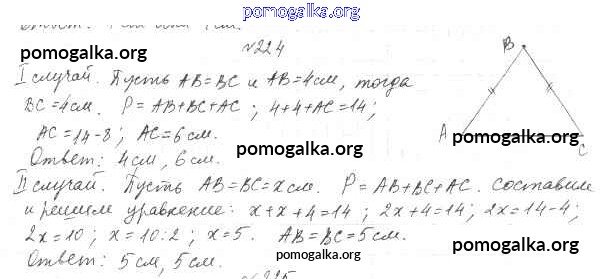 pomogalka.org
№224
pomogalka.org
pomogalka.org
I случай. Пусть AB=BC и AB=4см, тогда
BC=4см. P=AB+BC+AC; 4+4+AC=14;
AC=14-8; AC=6см.
Ответ: 4см, 6см.
pomogalka.org
B
A
C
pomogalka.org
II случай. Пусть AB=BC=x см. P=AB+BC+AC. Составим
и решим уравнение: x+x+4=14; 2x+4=14; 2x=14-4;
2x=10; x=10:2; x=5. AB=BC=5см.
Ответ: 5см, 5см.
pomogalka.org
pomogalka.org
pomogalka.org
№225